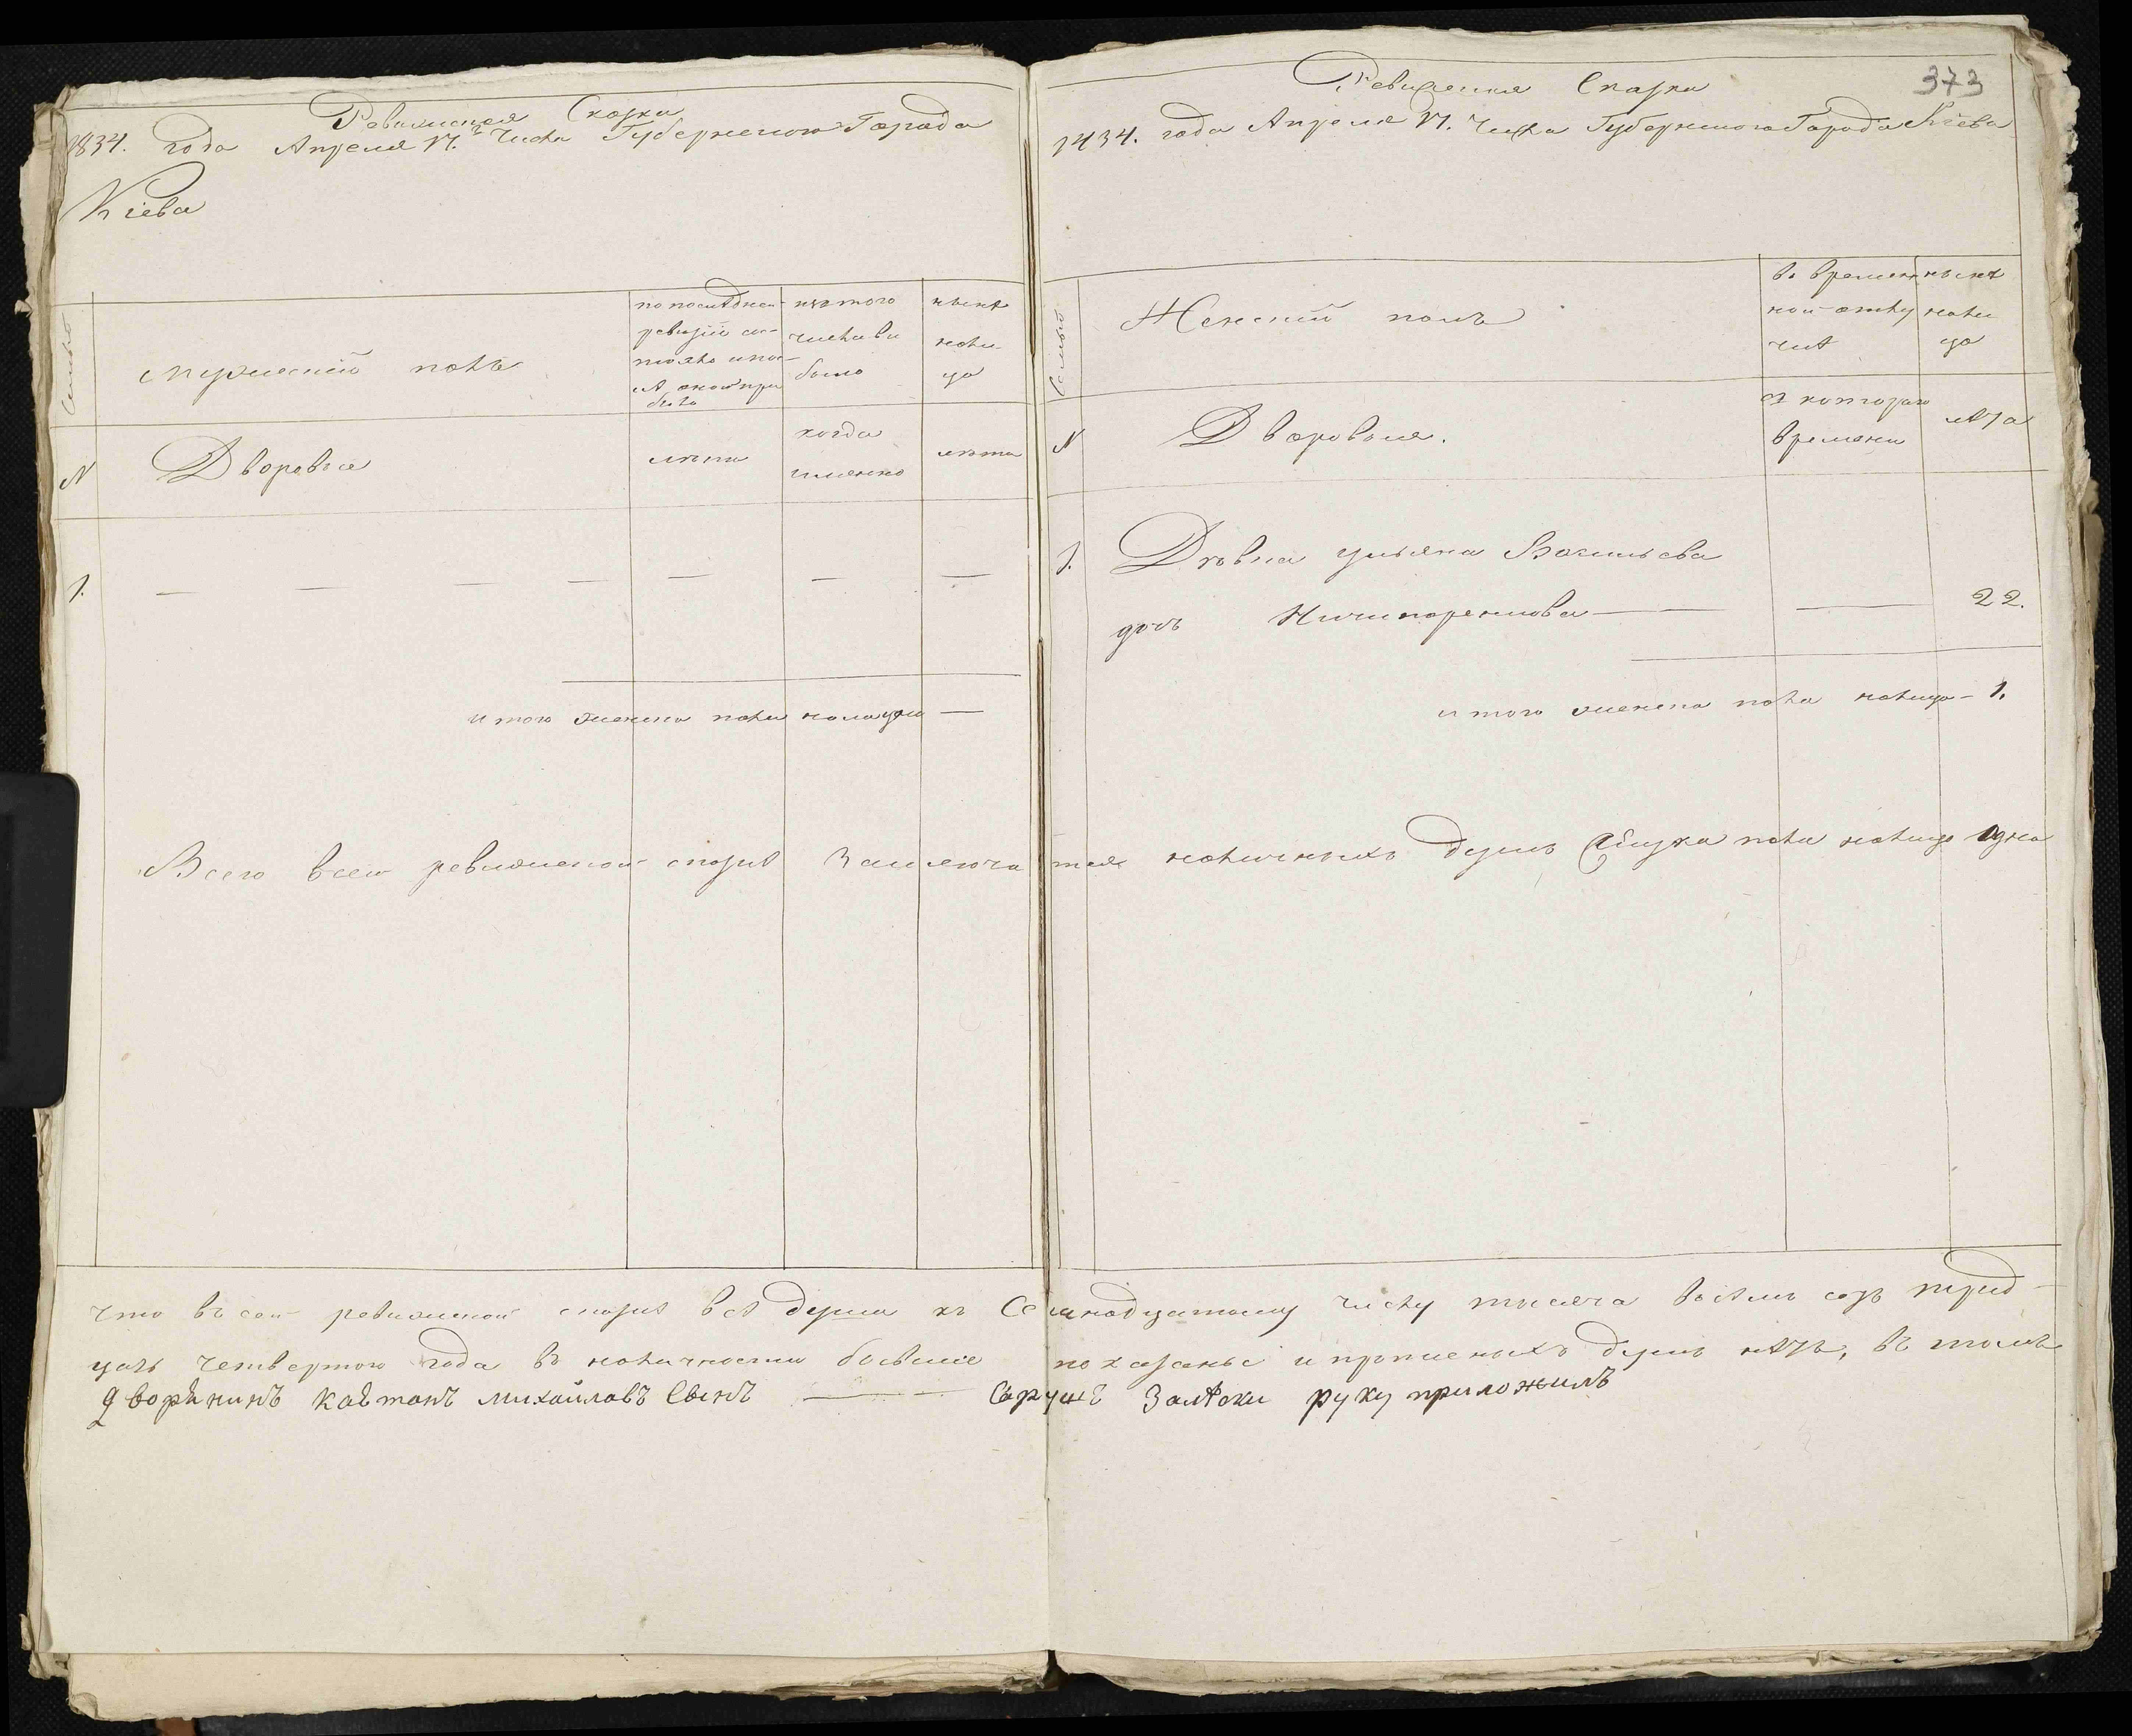 Ревижская Сказка
1834. года Апреля 17.го Числа Губернского Города
Кіева
Семьи
мужескій полъ
по последней
ревизіи сос-
тояло и пос-
лѣ оной при
было
изъ того
числа вы
было
нынѣ
на ли-
цо
N
Дворовые
лѣта
когда
именно
лѣта
1. — — — — — — —
итого женска пола налицо —
373
Ревижская Сказка
1834. года Апреля 17. Числа Губернского Города Кіева
Семьи
Женскій полъ
во времен
ной отлу
чкѣ
нынѣ
нали
цо
N
Дворовыя.
съ котораго
времени
лѣта
1. Дѣвка Ульяна Васильева
дочь Ничипоренкова — — 22.
итого женска пола налицо - 1.
Всего в сей ревижской сказкѣ Заключается наличныхъ душъ пола налицо одна
Что въ сей ревижской сказкѣ всѣ души къ Семнадцатому числу тысяча восемь сотъ трид-
цать четвертого года въ наличности бывшіе показаны и прописныхъ душъ нѣтъ, въ томъ
дворянинъ каетанъ михайловъ Сынъ — Залѣски руку приложилъ